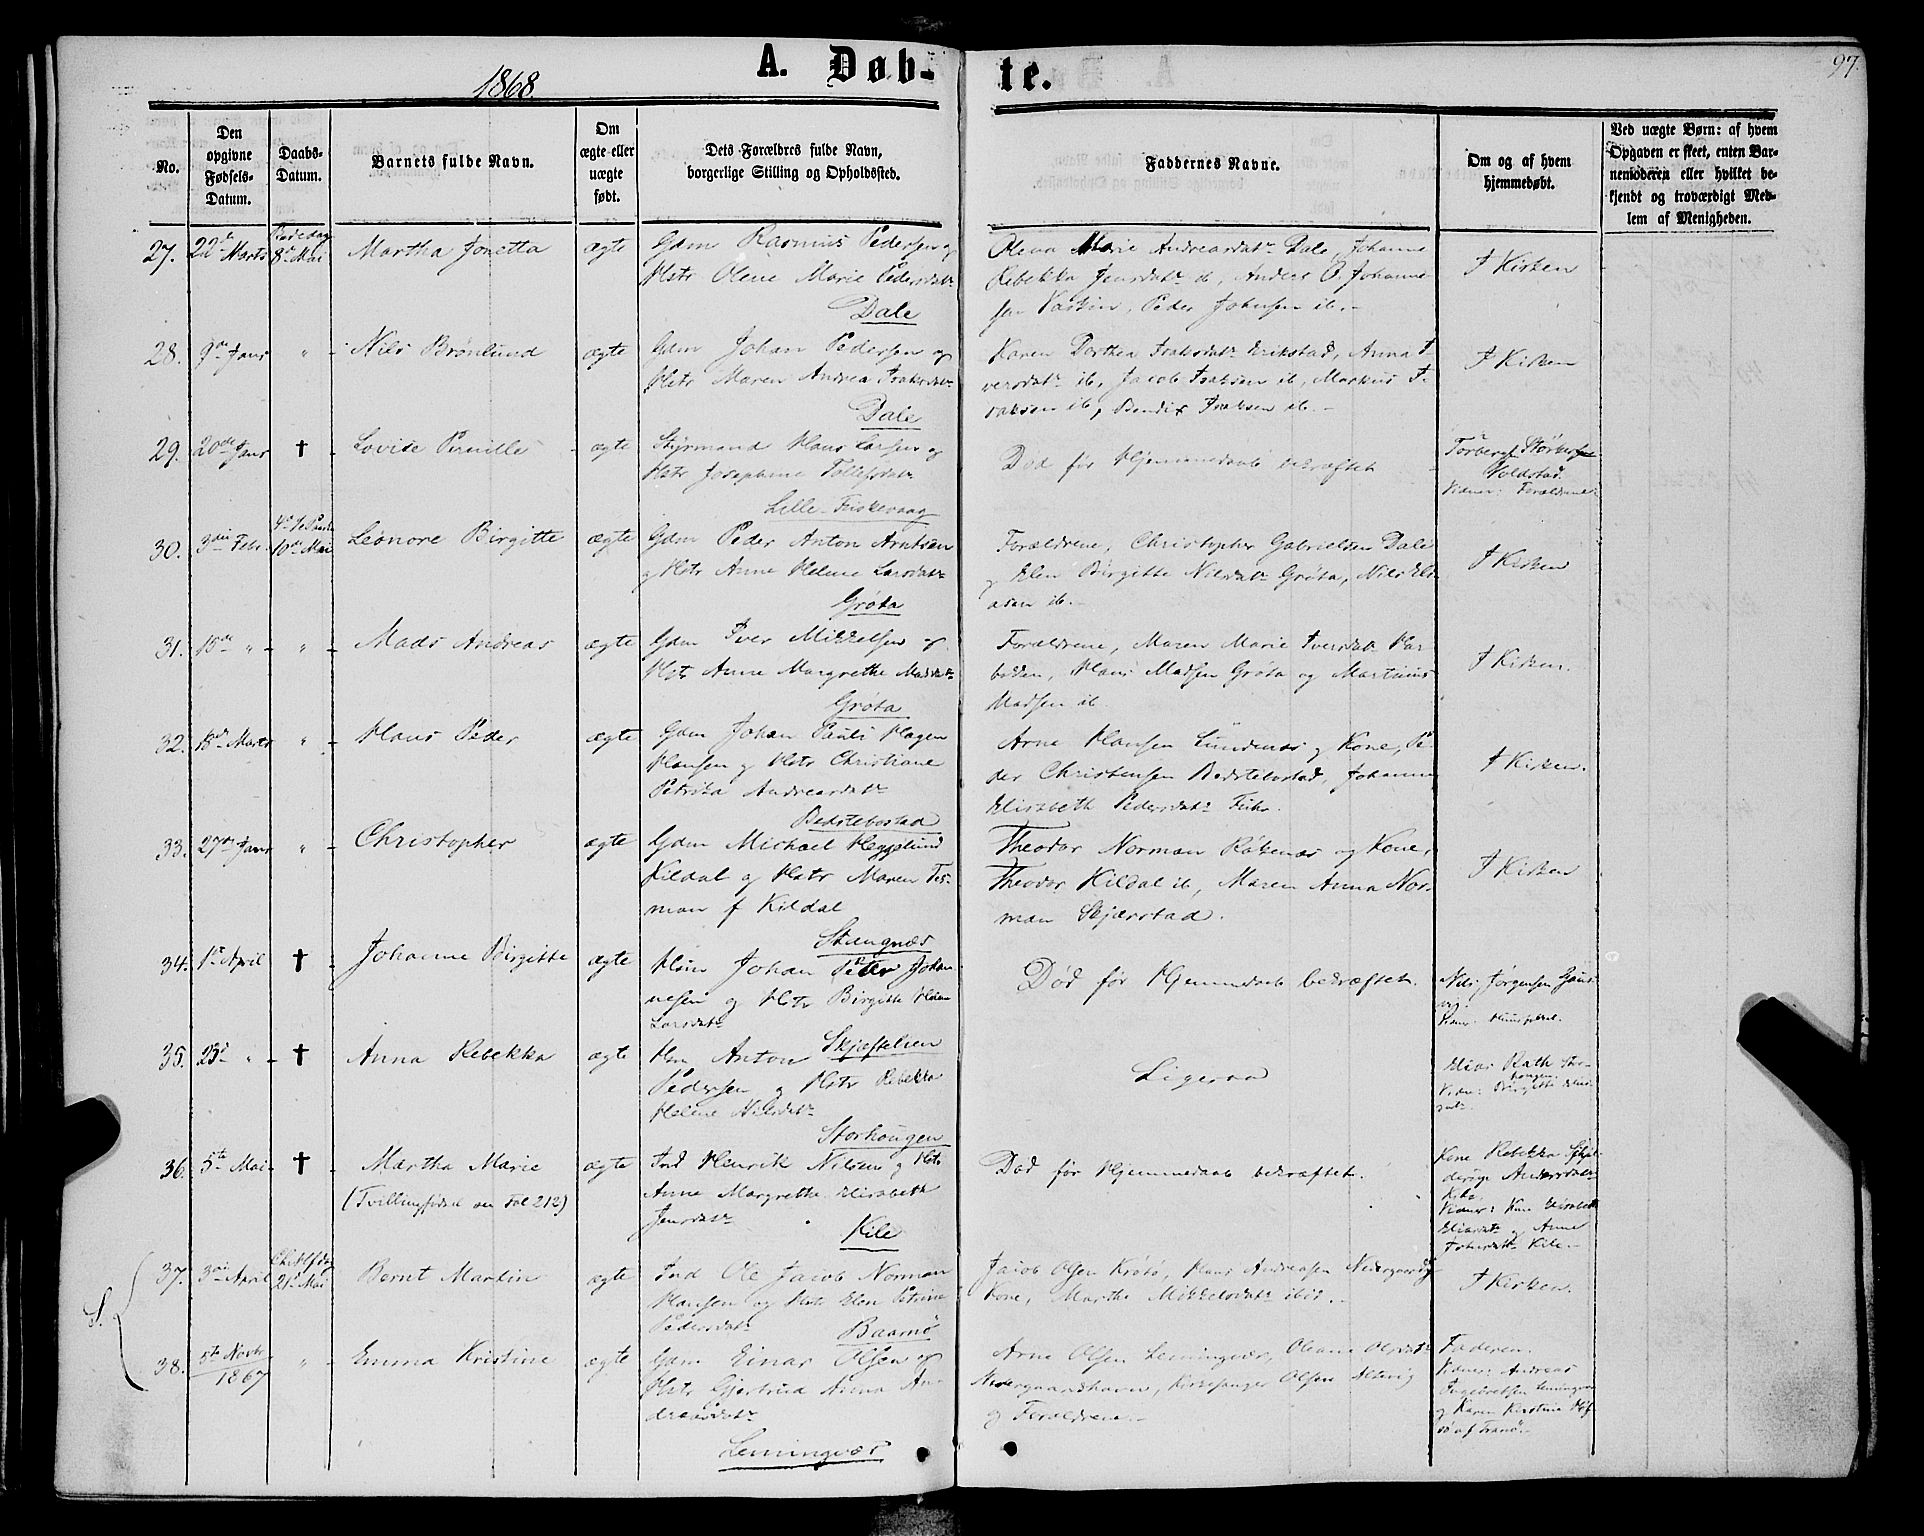 1868
A. Døb-
te.
97.
No.
Den opgivne Fødsels-Datum.
Daabs-Datum.
Barnets fulde Navn.
Om ægte eller uægte født.
Dets Forældres fulde Navn,
borgerlige Stilling og Opholdssted.
Faddernes Navne.
Om og af hvem
hjemmedøbt.
Ved uægte Børn: af hvem
Opgaven er skeet, enten Bar-
nemoderen eller hvilket be-
kjendt og troværdigt Med-
lem af Menigheden.
27. 22de Marts Bededag 8de Mai Martha Jonetta ægte Gdm Rasmus Pedersen og
Hstr Olene Marie Pedersdatr
Dale
Olena Marie Andreasdatr Dale, Johanne
Rebekka Jensdatr ib, Anders O. Johanne
sen, Peder Johnsen ib.
I Kirken
28. 9de Janr " Nils Brønlund ægte Gdm Johan Pedersen og
Hstr Maren Andrea Isaksdatr
Dale
Karen Dorthea Isaksdatr Erikstad, Anna I-
versdatr ib, Jacob Isaksen ib, Markus I-
saksen ib, Bendix Isaksen ib.
I Kirken
29. 20de Janr † Lovise Pernille ægte Styrmand Hans Larsen og
Hstr Josephine Tollefsdatr
Lille-Fiskevaag
Død før Hjemmedaab bekræftet
Vidner: Forældrene
30. 3die Febr. 10de Mai Leonore Birgitte ægte Gdm Peder Anton Arntsen
og Hstr Anne Helene Larsdatr
Grøta
Forældrene, Christopher Gabrielsen Dale
og Elen Birgitte Nilsdatr Grøta, Nils Eli-
asen ib.
I Kirken
31. 15de " " Mads Andreas ægte Gdm Iver Mikkelsen og
Hstr Anne Margrethe Madsdatr
Grøta
Forældrene, Maren Marie Iversdatr
Hans Madsen Grøta og Martinus
Madsen ib.
I Kirken.
32. 18de Marts " Hans Peder ægte Gdm Johan Pauli Hagen
Hansen og Hstr Christiane
Petrika Andreasdatr
Bedstebostad
Arne Hansen Sundenes og Kone, Pe-
der Christensen Bedstebostad, Johanne
Elisabeth Pedersdatr
I Kirken.
33. 27de Janr " Christopher ægte Gdm Michael Heggelund
Kildal og Hstr Maren
f Kildal
Stangnes
Theodor Norman Røkenes og Kone,
Theodor Kildal ib, Maren Anna Nor-
man Skjærstad.
I Kirken
34. 1ste April † Johanne Birgitte ægte Huusm Johan Peter Johan-
nesen og Hstr Birgitte
Larsdatr
Skjæftelien
Død før Hjemmedaab bekræftet.
Nils Jørgensen
35. 23de " † Anna Rebekka ægte Hm Anton
Pedersen og Hstr Rebekka
Helene Nilsdatr
Storhaugen
Ligesaa
Elias Rath Stor-
haugen
Vidn: Birgitte
36. 5te Mai † Martha Marie ægte Ind Henrik Nilsen og Hstr
(Tvillingfødsel see Fol 212)
Anne Margretha Elisabeth
Jensdatr
Kile
Død før Hjemmedaab bekræftet.
Kone Rebekka
Andersdatr
Kile.
Vidner: Kone Elisabeth
Eliasdatr og Anne
Johnsdatr Kile.
37. 3die April 21de Mai Bernt Martin ægte Ind Ole Jacob Norman
Hansen og Hstr Elen Petrine
Pedersdatr
Baamø
Jacob Olsen Krøtø, Hans Andreasen Nedergaard og
Kone, Martha Mikkelsdatr ibid.
I Kirken.
S.
38. 5te Novbr 1867 " Emma Kristine ægte Gdm Einar Olsen og
Hstr Gjertrud Anna An-
dreasdatr
Lemingvær
Arne Olsen Lemingvær, Oleana Olsdatr
Nedergaardshavn, Kirkesanger Olsen
og Forældrene.
Faderen.
Vidner: Andreas
Ingebretsen Lemingvær
og Karen Kirstine
af Tranø.